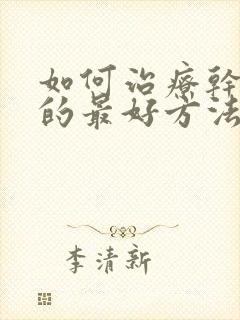 如何治療幹
的最好方法
李清新